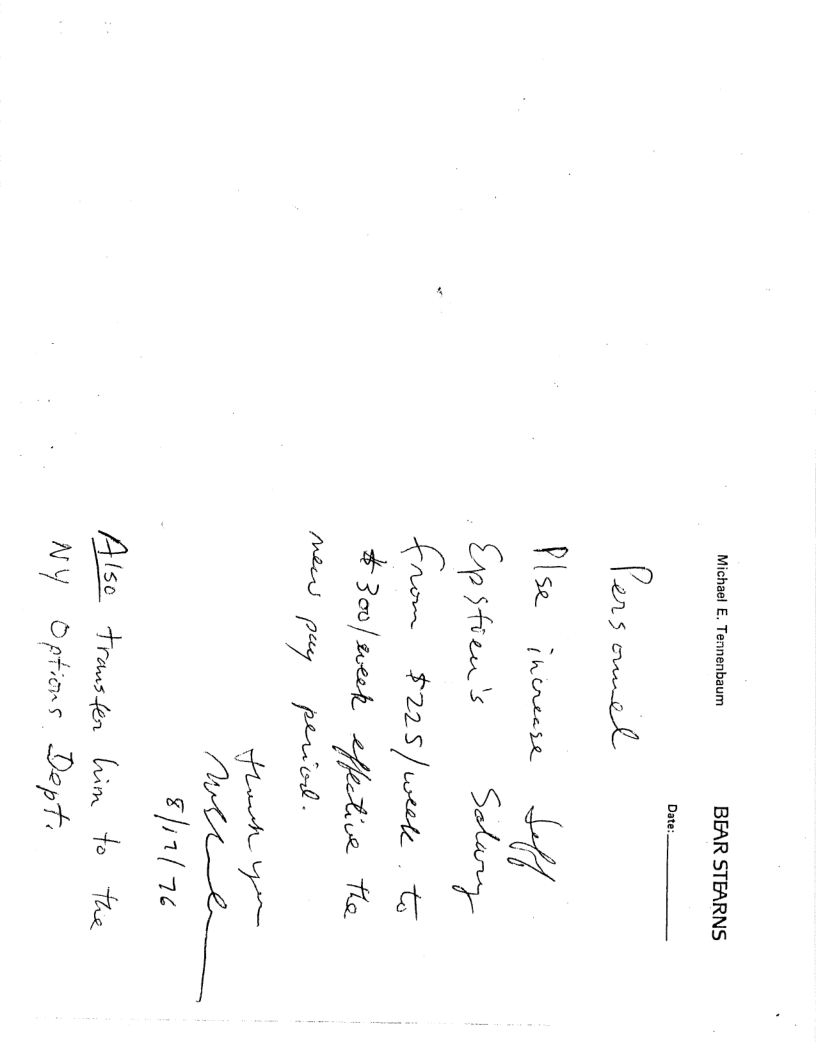 Michael E. Tennenbaum BEAR STEARNS
Date:
Personnel
Plse increase Jeff
Epstien's Salary
from $225/week to
$300/week effective the
new pay period.
Thank you
8/17/76
Also transfer him to the
NY Options Dept.